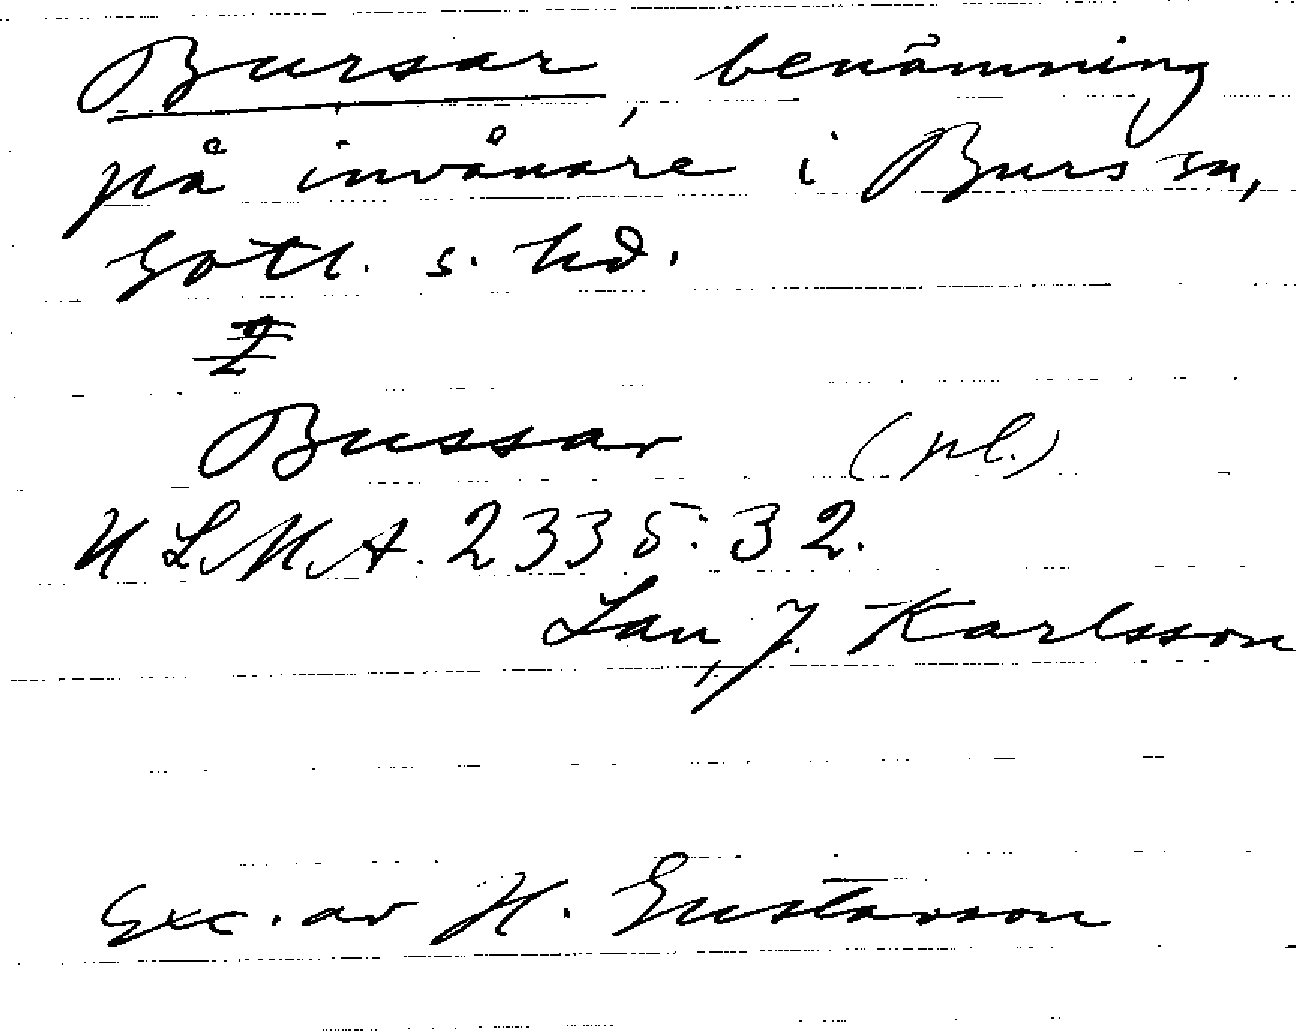 Bursar, benämning
på invånare i Burs sn,
Gotl. s. hd.
Bussar (pl.)
ULMA. 2335:32.
Lau, J. Karlsson
Exc. av H. Gustavson